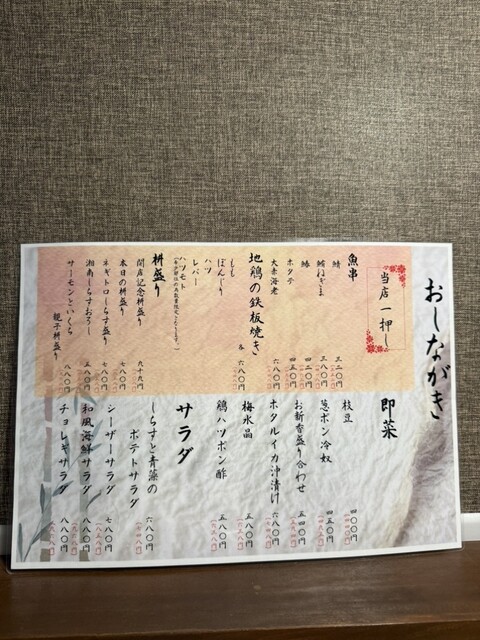 おしながき
当店一押し
魚串
鯖 三二〇円
鮪ねぎま 三八〇円
鰻 四二〇円
ホタテ 四五〇円
大赤海老 六八〇円
地鶏の鉄板焼き 各 六八〇円
もも
ぼんじり
ハツ
レバー
ハツモト
枡盛り
開店記念枡盛り
本日の枡盛り 七八〇円
ネギトロしらす盛り 七八〇円
湘南しらすおろし 五八〇円
サーモンといくら
親子枡盛り 八八〇円
即菜
枝豆 四〇〇円
葱ポン冷奴 四五〇円
お新香盛り合わせ 五四〇円
ホタルイカ沖漬け 六八〇円
梅水晶 五八〇円
鶏ハツポン酢 五八〇円
サラダ
しらすと青藻の
ポテトサラダ 六八〇円
シーザーサラダ 七八〇円
和風海鮮サラダ 八八〇円
チョレギサラダ 八八〇円